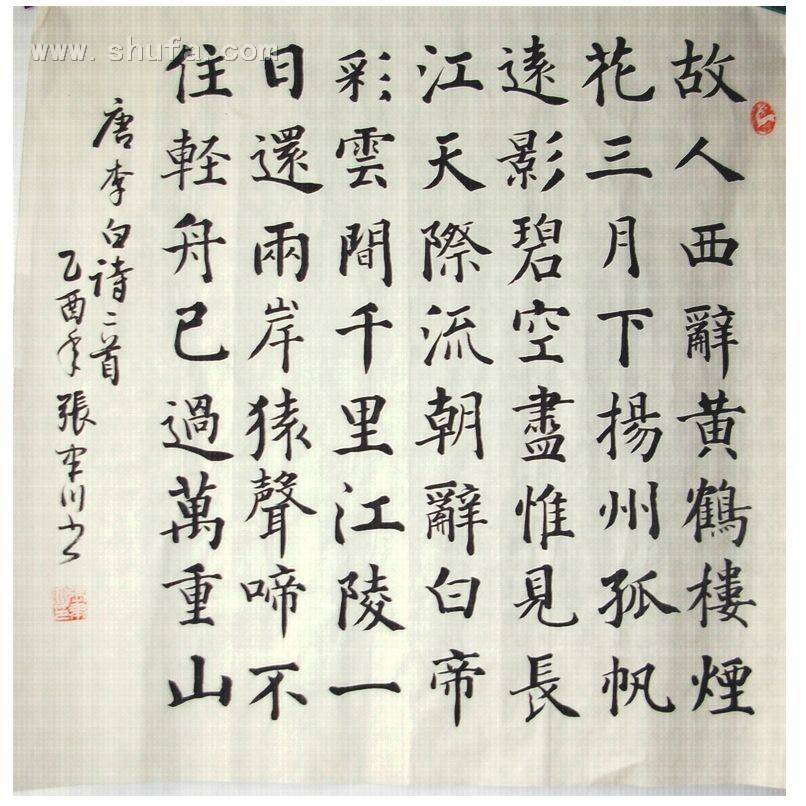 故人西辭黃鶴樓煙
花三月下揚州孤帆
遠影碧空盡惟見長
江天際流朝辭白帝
彩雲間千里江陵一
日還兩岸猿聲啼不
住軽舟已過萬重山
唐李白诗二首
乙酉年張川书
www.shufa.com